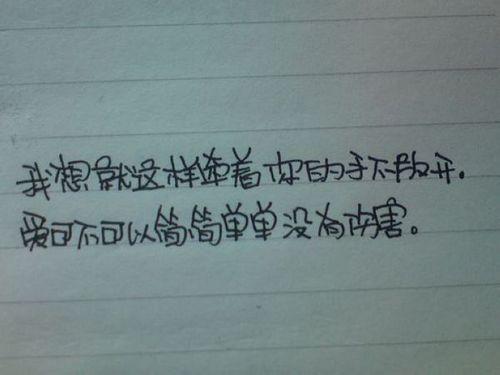 我想就这样牵着你的手不放开.
爱可不可以简简单单没有伤害。